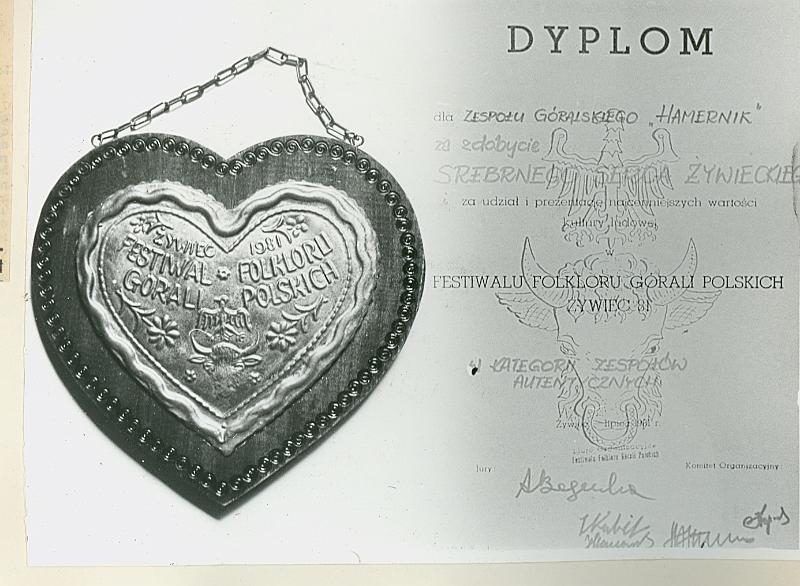 ŻYWIEC 1981
FESTIWAL FOLKLORU
GÓRALI POLSKICH
DYPLOM
dla ZESPOŁU GÓRALSKIEGO „HAMERNIK"
za zdobycie
SREBRNEGO SERCA ŻYWIECKIEGO
za udział i prezentację najcenniejszych wartości
kultury ludowej
w
FESTIWALU FOLKLORU GÓRALI POLSKICH
ŻYWIEC 81
W KATEGORII ZESPOŁÓW
AUTENTYCZNYCH
Żywiec lipiec 1981 r.
Biuro Organizacyjne
Festiwalu Folkloru Górali Polskich
Jury Komitet Organizacyjny